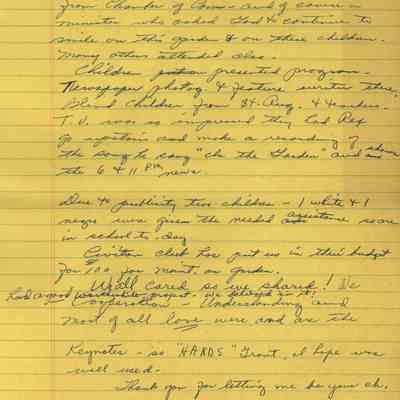 from Chamber of Com- and of course a
minister who asked God to continue to
smile on this garden & on these children.
Many others attended also.
Children presented program.
Newspaper photog. & feature writer there,
Blind Children from St. Aug. & teachers.
T.V. was so impressed they had Rex
go upstairs and make a recording of
the song he sang "In the Garden" and shown
the 6 & 11 P.M. news.
Due to publicity two children - 1 white & 1
negro were given the needed assistance so are
in school to-day
Civitan club has put us in their budget
for $100 for maint. on garden.
We all cared so we shared! We
had a good project. We believed in it,
Cooperation - Understanding and
most of all love were and are the
Keynotes - so "HANDS" Grant, I hope was
well used.
Thank you for letting me be your ch.